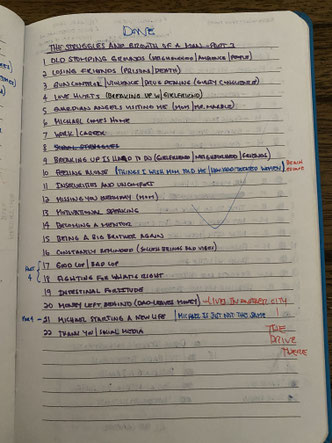 DONE
THE STRUGGLES AND GROWTH OF A MAN - PART 3
1 OLD STOMPING GROUNDS (NEIGHBORHOOD / AMBIANCE / PEOPLE)
2 LOSING FRIENDS (PRISON / DEATH)
3 GUN CONTROL / VIOLENCE / DRUG DEALING (GUILTY CONSCIENCE)
4 LOVE HURTS (BREAKING UP W/ GIRLFRIEND)
5 GUARDIAN ANGELS VISITING ME (MOM / MR. MARBLE)
6 MICHAEL COMES HOME
7 WORK / CAREER
8 SOCIAL
9 BREAKING UP IS HARD TO DO (GIRLFRIEND / NEIGHBORHOOD / FRIENDS)
10 FEELING ALONE (THINGS I WISH MOM TOLD ME / HOW DAD TREATED WOMEN)
11 INSECURITIES AND UNCOMFORT
12 MISSING YOU EVERYDAY (MOM)
13 MOTIVATIONAL SPEAKING
14 BECOMING A MENTOR
15 BEING A BIG BROTHER AGAIN
16 CONSTANTLY REMINDED (SUCCESS BRINGS BAD VIBES)
PART 4
17 GOOD COP / BAD COP
18 FIGHTING FOR WHAT'S RIGHT
19 INTESTINAL FORTITUDE
20 MONEY LEFT BEHIND (DAD LEAVES MONEY) - LIVES IN ANOTHER CITY
PART 4 - 21 MICHAEL STARTING A NEW LIFE / MICHAEL IS JUST NOT THE SAME
22 THANK YOU / SOCIAL MEDIA
THE
DRIVE
THERE